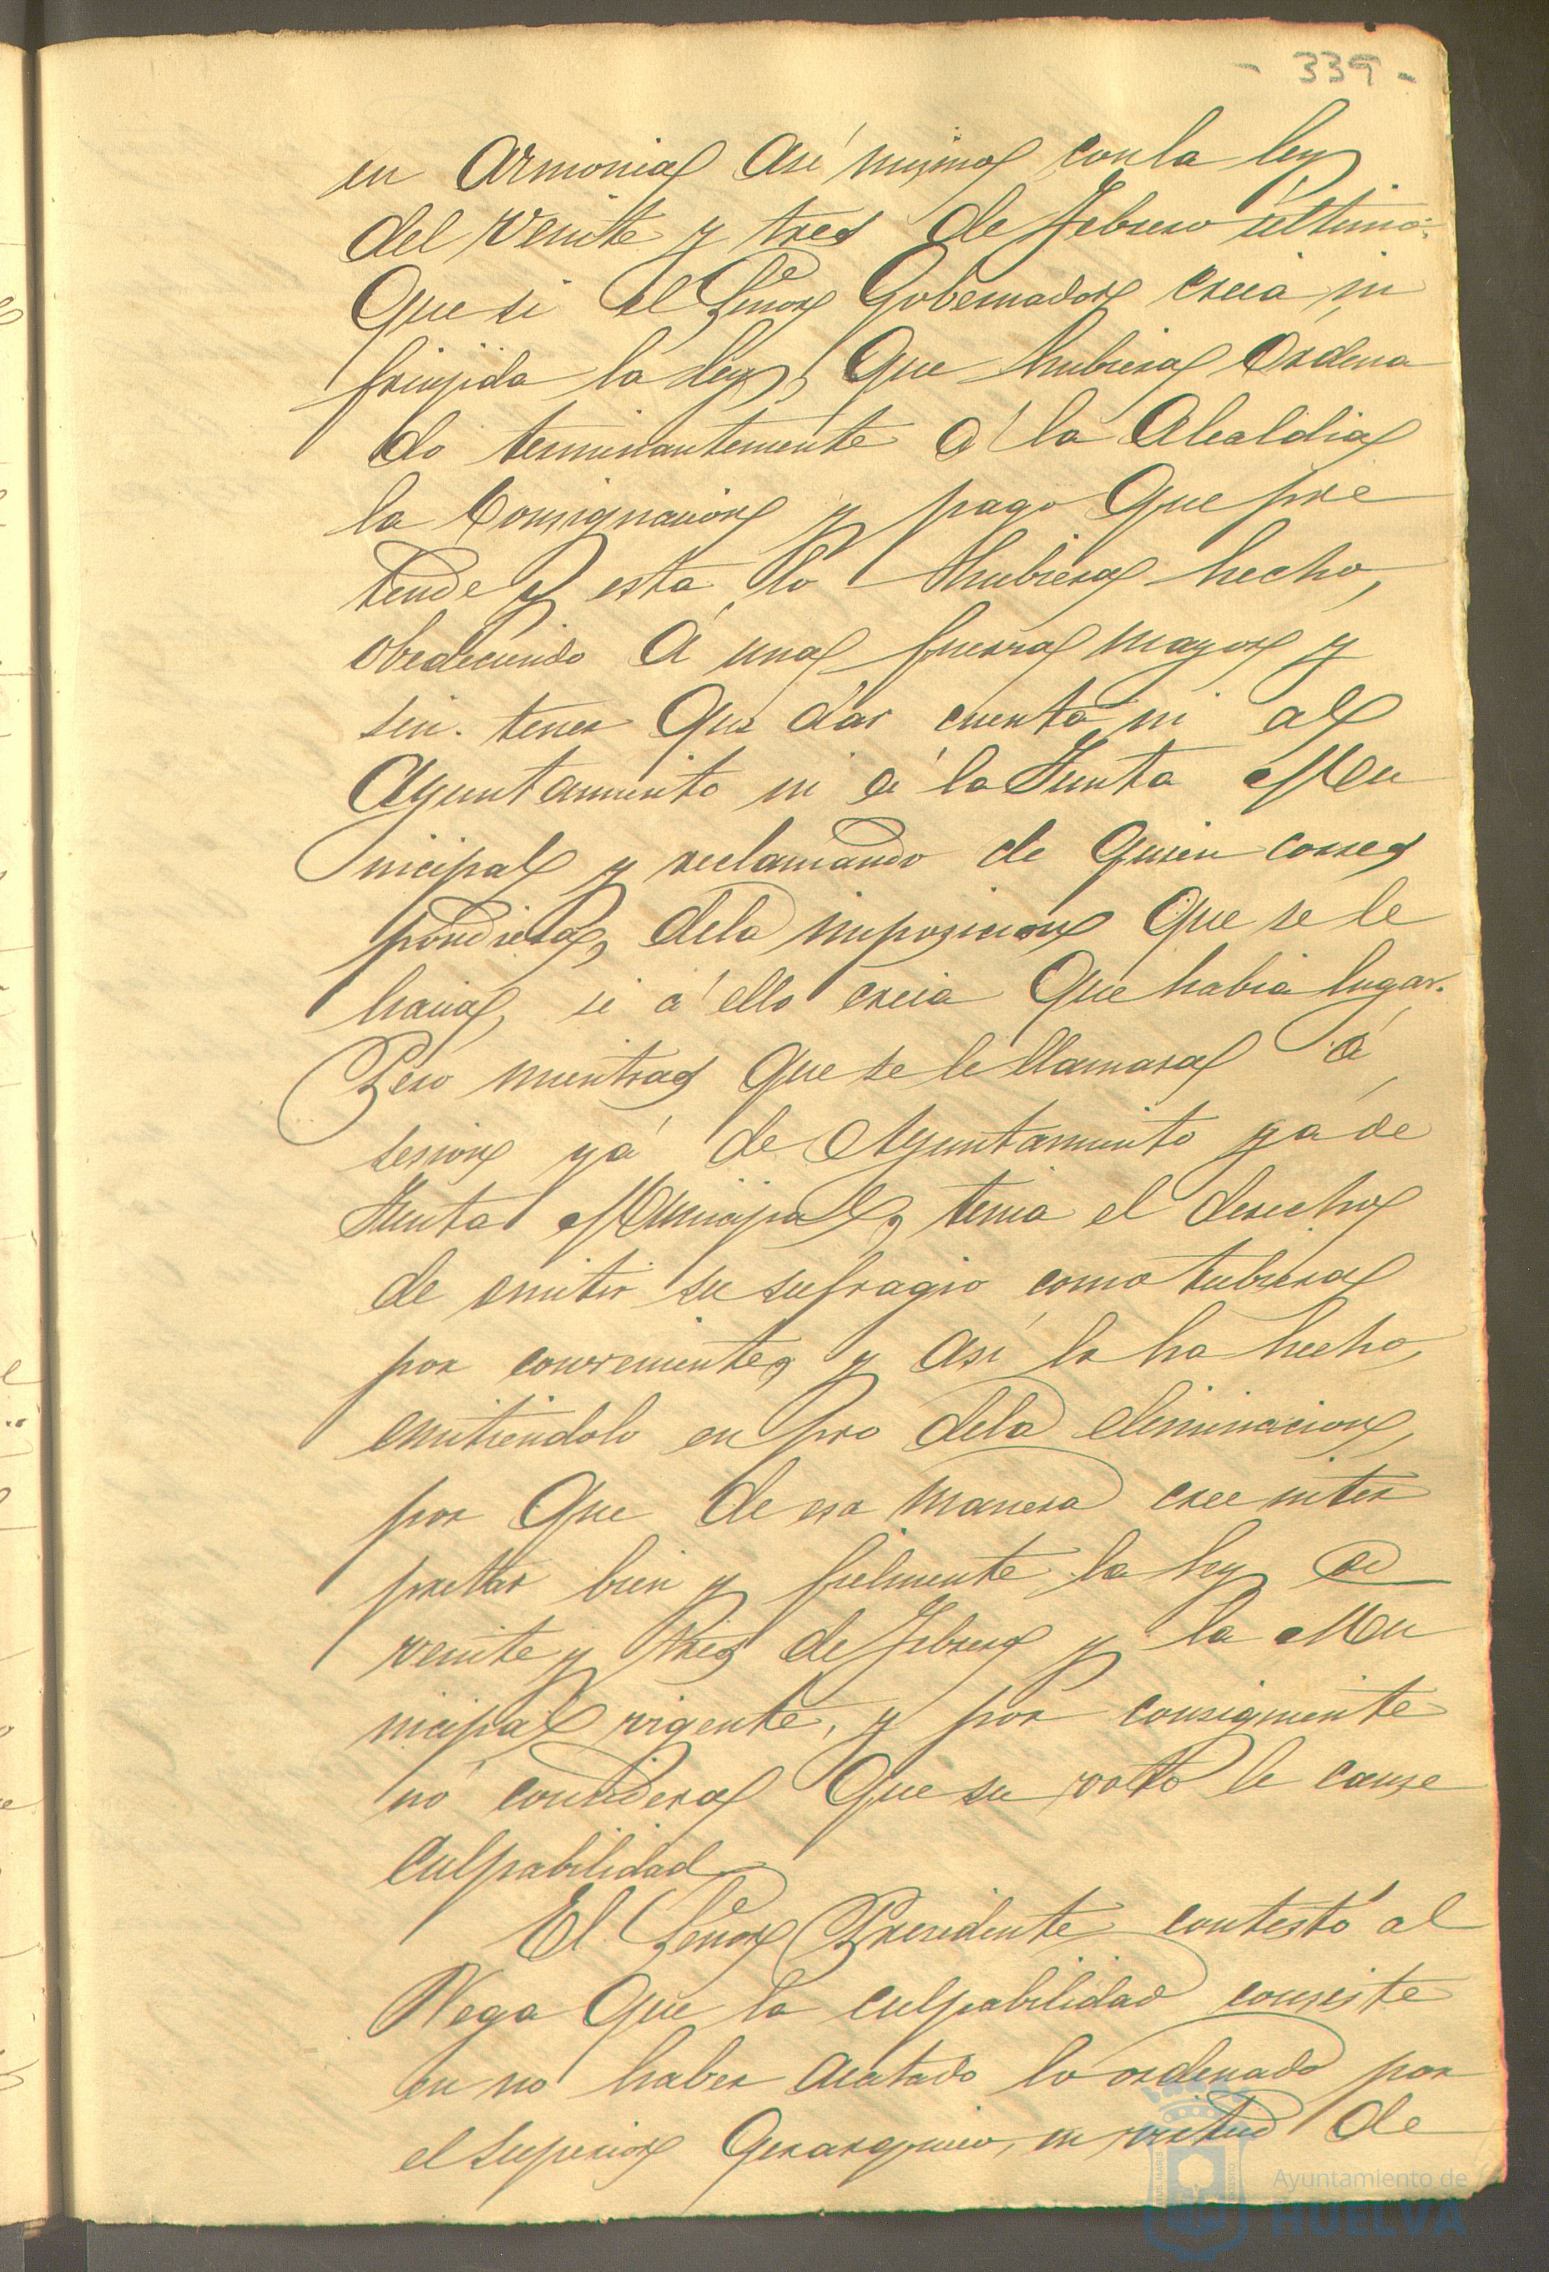 - 339 -
en armonia así mismo con la ley
del veinte y tres de Febrero último:
Que si el Señor Gobernador creia in
frinjida la ley, que hubiera ordena
do terminantemente á la Alcaldia
la consignacion y pago que pre
tende y esta lo hubiera hecho,
obedeciendo á una fuerza mayor y
sin tener que dar cuenta ni al
Ayuntamiento ni á la Junta Mu
nicipal y reclamando de quien corres
pondiera, dela imposicion que se le
hacia, si á ello creia que habia lugar.
Pero mientras que se le llamara á
sesion yá de Ayuntamiento yá de
Junta Municipal, tenia el derecho
de emitir su sufragio como tubiera
por conveniente, y así lo ha hecho,
emitiendolo en pro dela eliminacion,
por que de esa manera cree inter
pretar bien y fielmente la ley de
veinte y tres de Febrero y la Mu
nicipal vigente, y por consiguiente
nó considera que su voto le cause
culpabilidad.
El Señor Presidente contestó al
Vega que la culpabilidad consiste
en no haber acatado lo ordenado por
el superior gerarquico, en virtud de
Ayuntamiento de
HUELVA